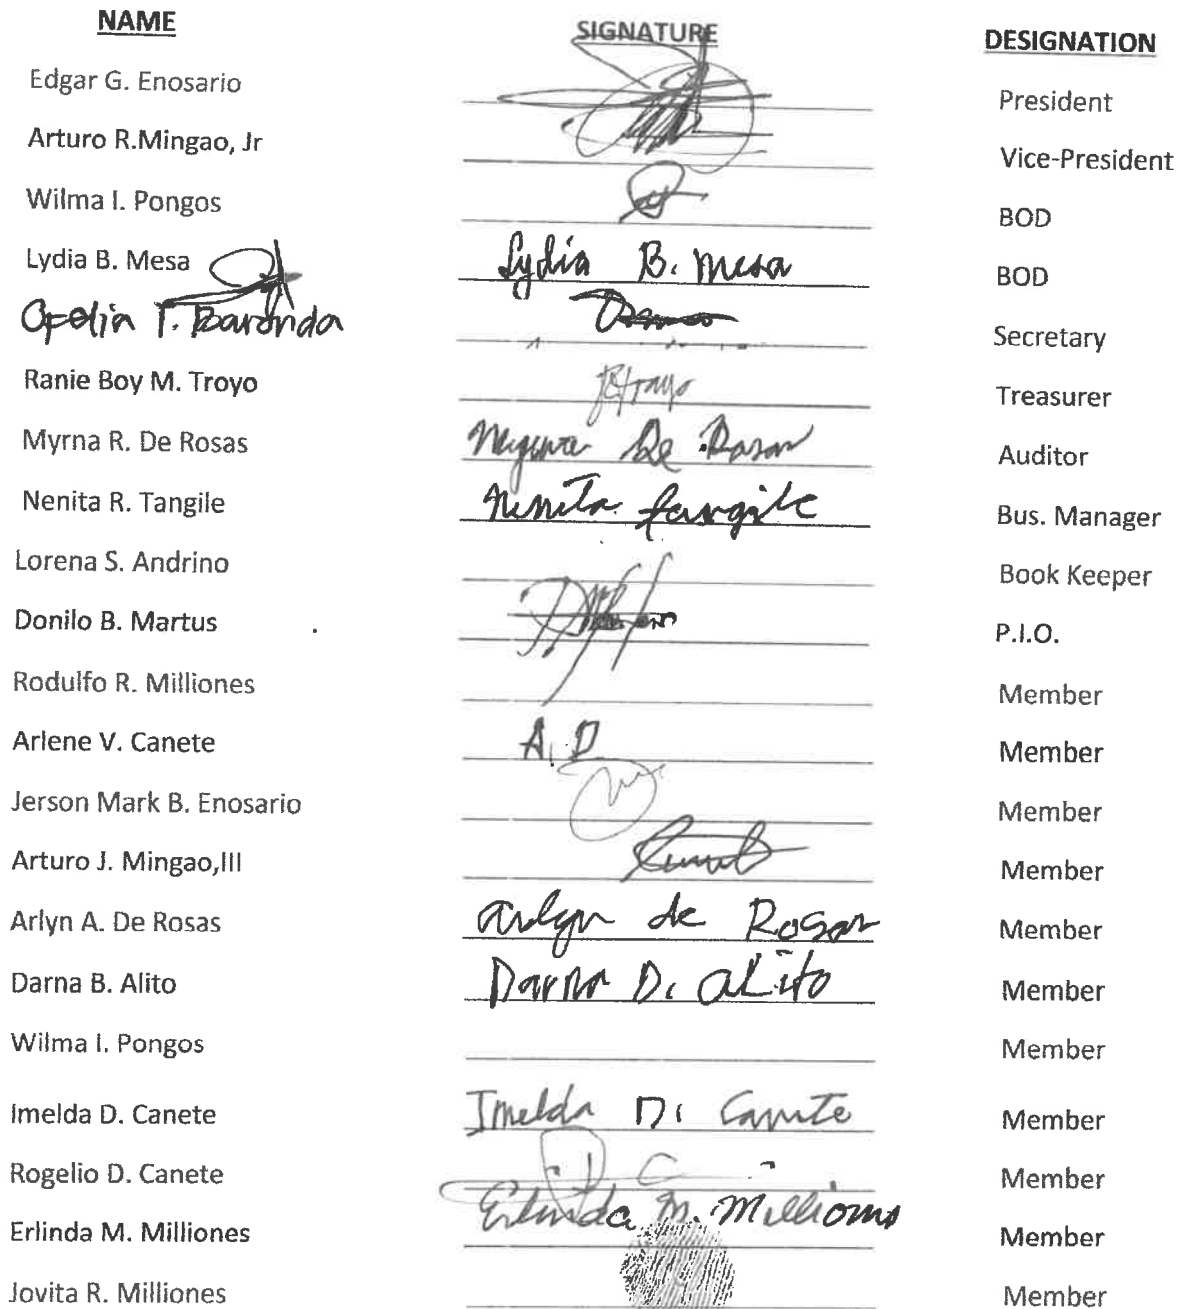 NAME SIGNATURE DESIGNATION
Edgar G. Enosario President
Arturo R.Mingao, Jr Vice-President
Wilma I. Pongos BOD
Lydia B. Mesa Lydia B. Mesa BOD
Ofelia T. Baronda Secretary
Ranie Boy M. Troyo Treasurer
Myrna R. De Rosas De Auditor
Nenita R. Tangile Nenita Tangile Bus. Manager
Lorena S. Andrino Book Keeper
Donilo B. Martus P.I.O.
Rodulfo R. Milliones Member
Arlene V. Canete A. D Member
Jerson Mark B. Enosario Member
Arturo J. Mingao,III Member
Arlyn A. De Rosas Arlyn de Rosas Member
Darna B. Alito Darna D. aLito Member
Wilma I. Pongos Member
Imelda D. Canete Imelda D. Canete Member
Rogelio D. Canete Member
Erlinda M. Milliones Erlinda M. Millions Member
Jovita R. Milliones Member